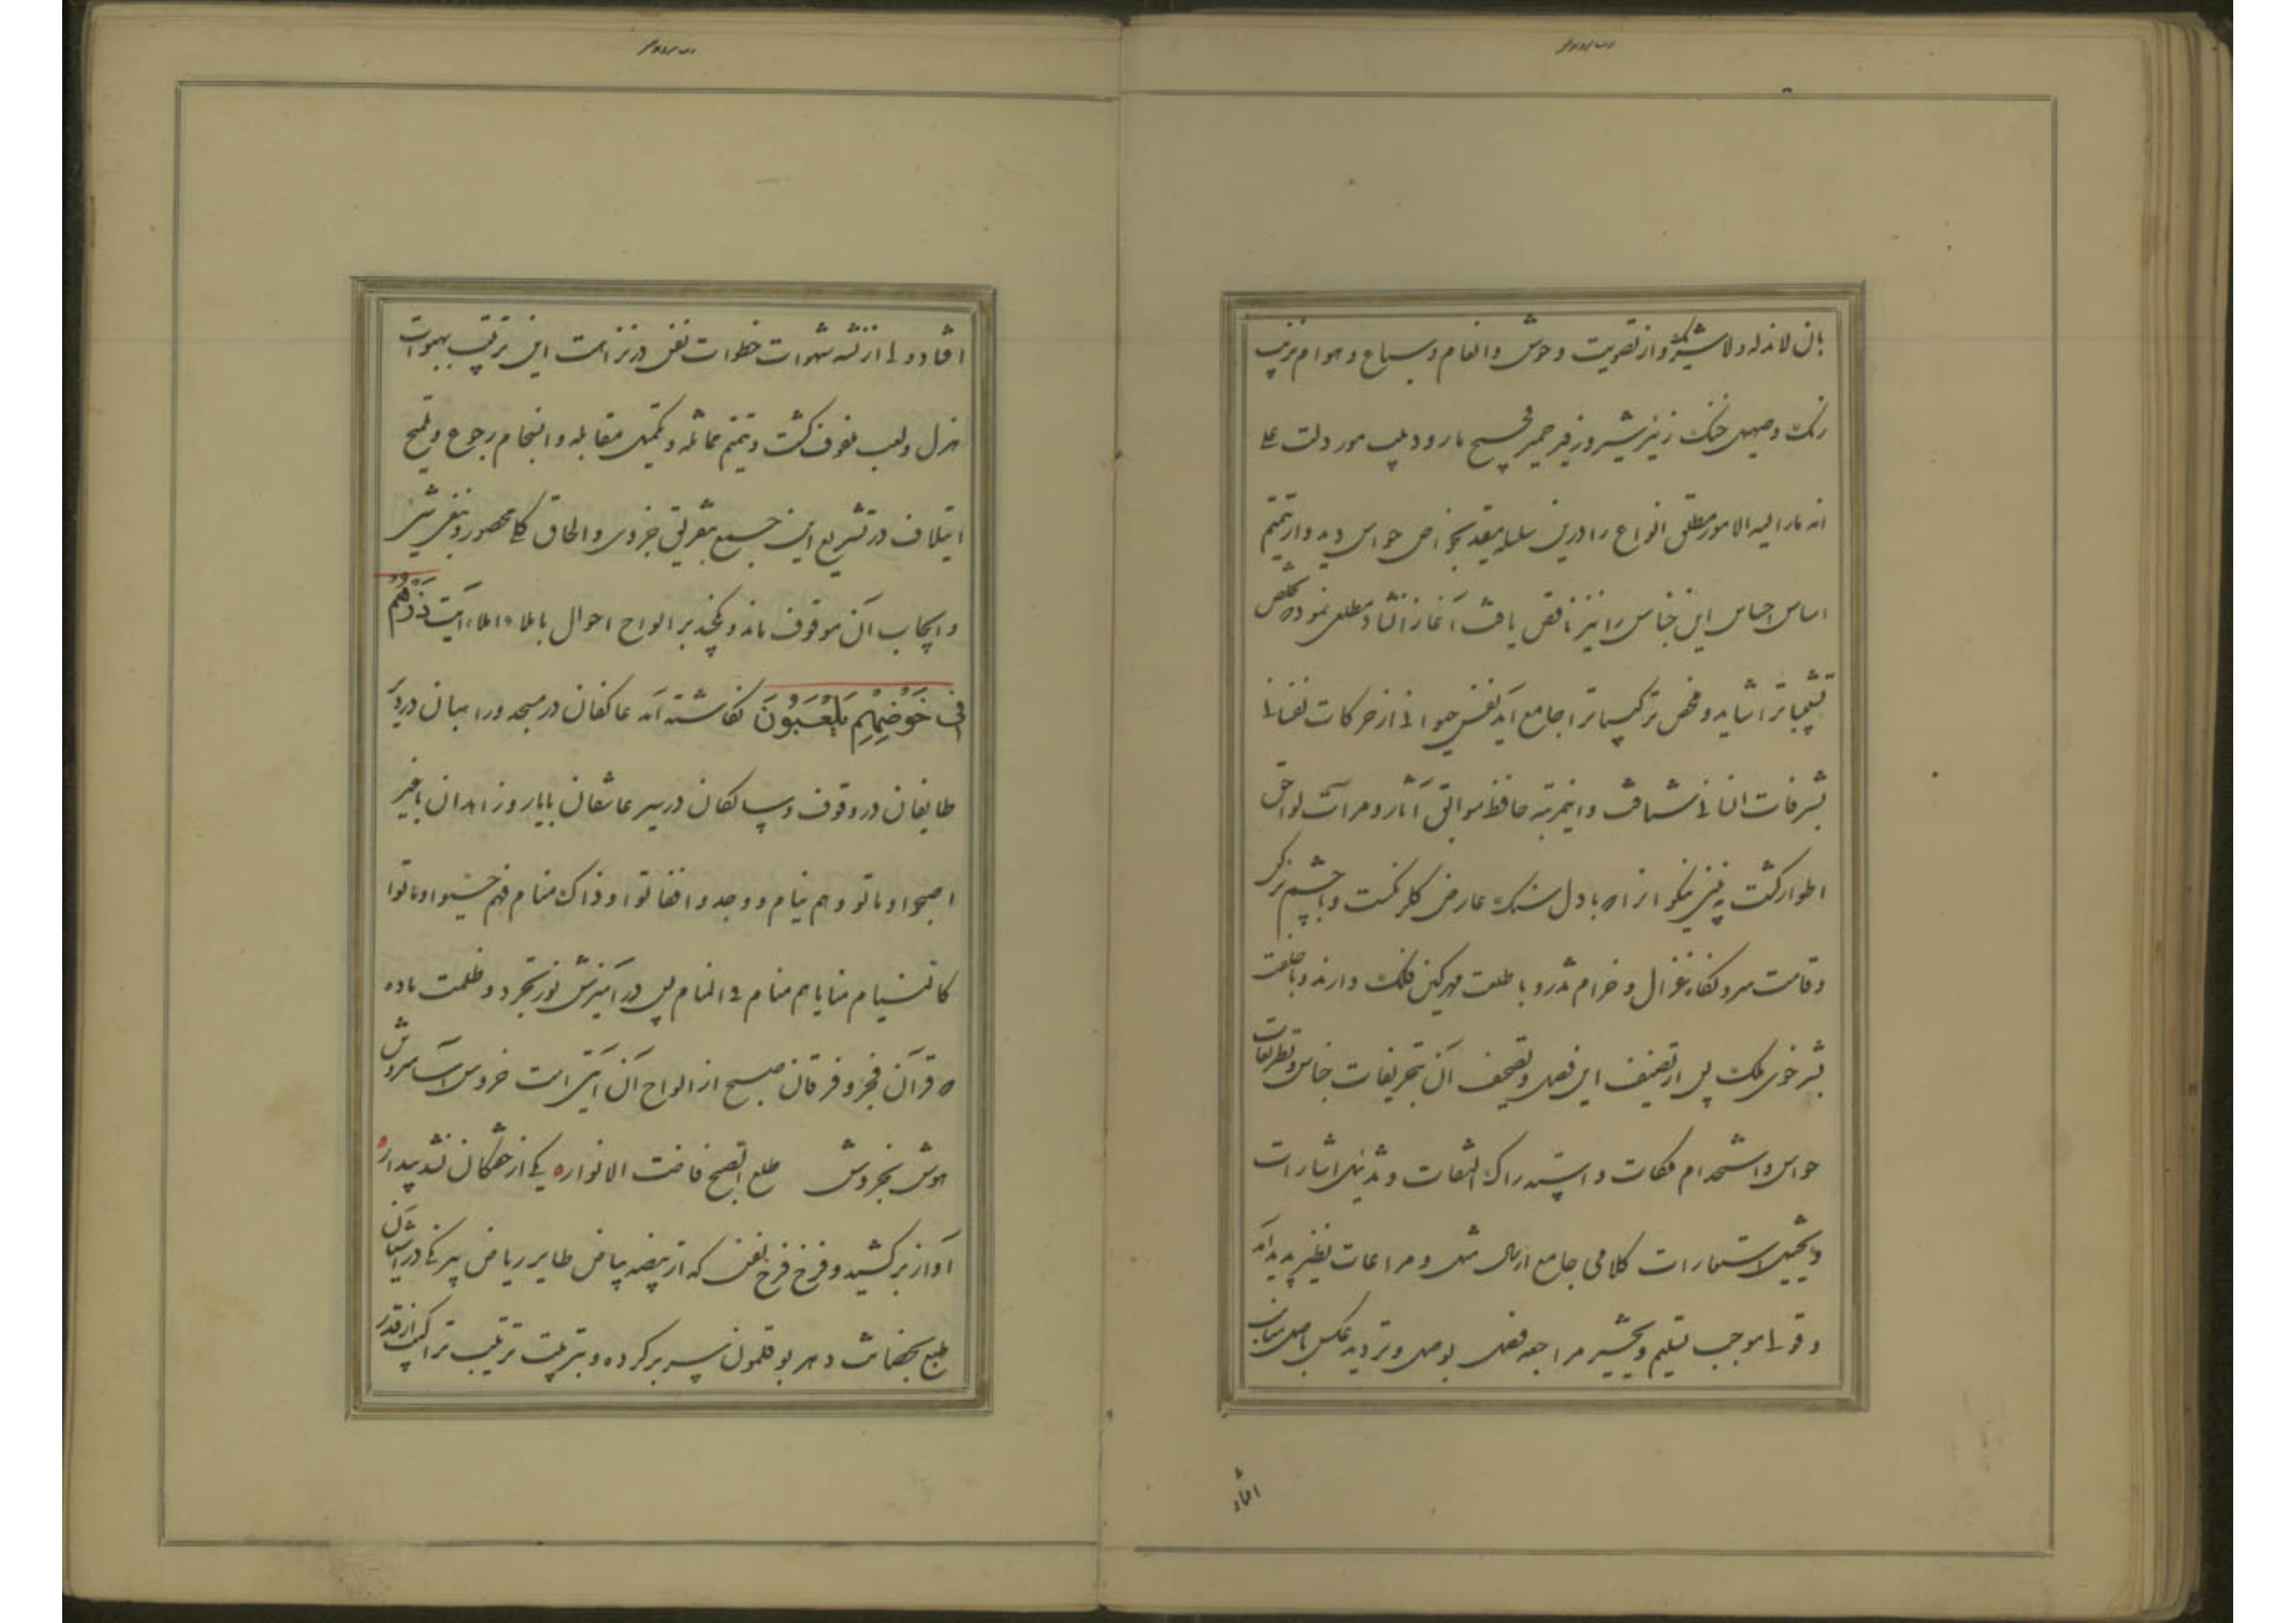 بان لاندله ولا شریک و از تصویت وحوش و انعام و سباع و هوام
رنک و صهیل خنک زئیر شیر و زفیر حمیر فحیح مار و دبیب مور دلت علی
انه نارالیه الامور مطلق انواع را درین سلسله مقید بخواص حواس دید و از تتمیم
اساس احساس این جناس را نیز ناقص یافت آغاز انشاد مطلعی نموده مخلص
را شاید و ملخص ترکیباترا جامع آید نفس حیوانی از حرکات نفسانی
بشرفات انسانی شتافت و اینمرتبه حافظ سوابق آثار و مرآت لواحق
اطوار کشت به بینی نیکوانرا که با دل سنک عارض کلرنکست و با چشم نرکس
و قامت سرو نکاه غزال و خرام تذرو با طلعت مهر کین فلک دارند و با خلقت
بشر خوی ملک پس از تصنیف این فصل و تصحیف آن بتحریفات جناس و تطریفات
حواس و استخدام ملکات و استدراک التفات و تذییل اشارات
و تخییل استعارات کلامی جامع ارسال مثل و مراعات نظیر پدید آمد
و قولی موجب تسلیم و مراجعه فصل بوصل و تردید عکس باصل
افتاد
افتاد ولی از نشئه شهوات خطوات نفس در نزاهت این ترتیب بهبوات
هزل و لعب ملفوف کشت و تتمیم مماثله و تکمیل مقابله و انسجام رجوع و تلمیح
ایتلاف در تشریع این جمع بتفریق جزوی و الحاق کلی محصور و بنفی شئ
و ایجاب آن موقوف ماند و بر الواح احوال باملاء املاء آیت ذَرْهُمْ
فِی خَوْضِهِمْ یَلْعَبُونَ نکاشته آمد عاکفان در مسجد و راهبان در دیر
طایفان در وقوف و سالکان در سیر عاشقان با یار و زاهدان با غیر
اصبحوا و ماتو و هم نیام و وجد و افغاتوا و ذاک منام فهم حسبوا و ماتوا
کانت نیام منایاهم منام فی المنام پس در آمیزش نور تجرد و ظلمت ماده
که قرآن فجر و فرقان صبح از الواح آن آیتی است خروس آسا سروش
هوش بخروش طلع الصبح فاضت الانوار یکی از خفتکان نشد بیدار
آواز برکشید و فرخ فرخ نفس که از بیضه بیاض طایر ریاض
طبع بحضانت دهر بوقلمون سر بر کرده و بتربیت ترتیب تراکیب از قدر